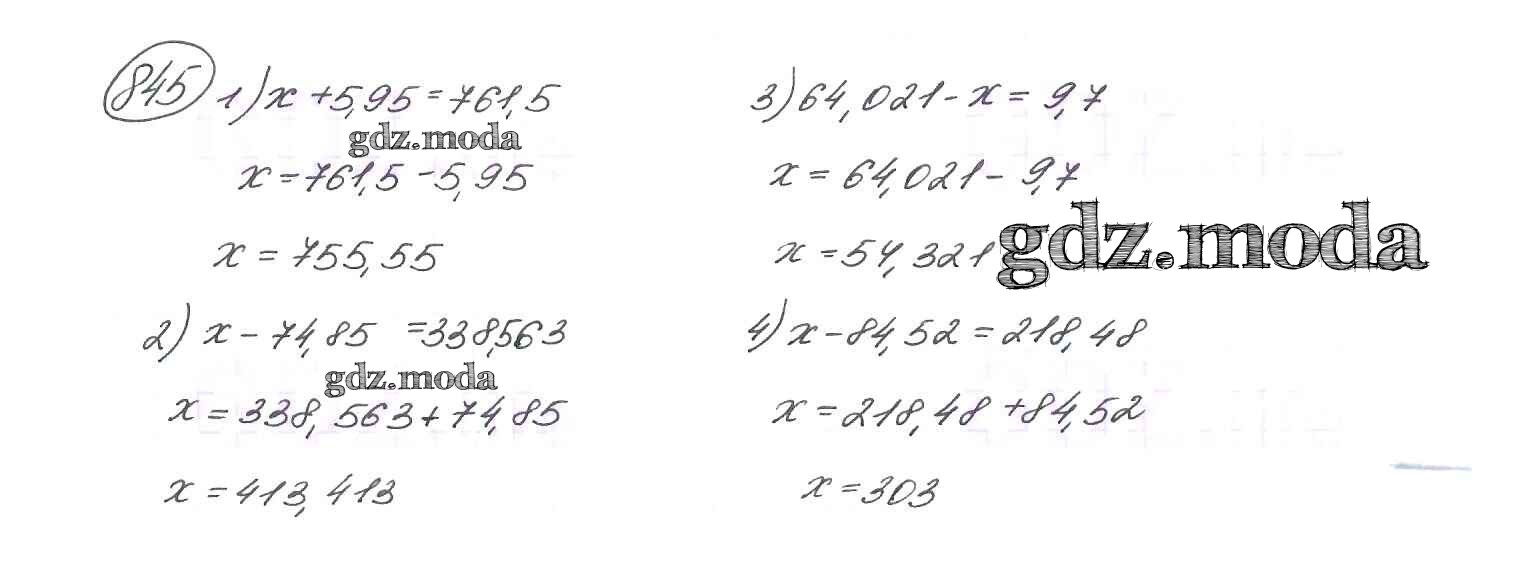 845 1) x + 5,95 = 761,5
gdz.moda
x = 761,5 - 5,95
x = 755,55
2) x - 74,85 = 338,563
gdz.moda
x = 338,563 + 74,85
x = 413,413
3) 64,021 - x = 9,7
x = 64,021 - 9,7
x = 54,321
gdz.moda
4) x - 84,52 = 218,48
x = 218,48 + 84,52
x = 303